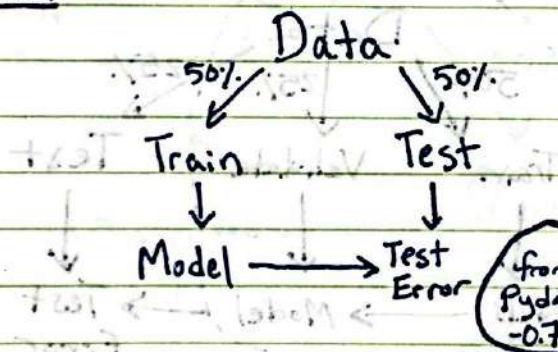 Data
50% 50%
Train Test
Model Test
Error
-0.7